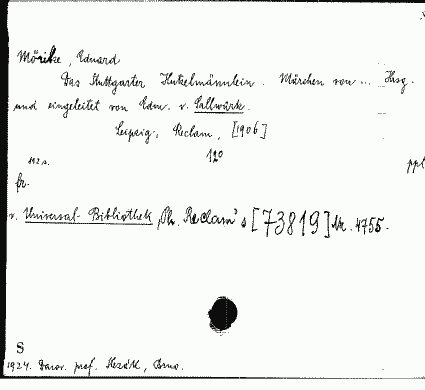 Mörike, Eduard
Das Stuttgarter Hutzelmännlein. Märchen von ... Hsg.
und eingeleitet von Edm. v. Sallwürk.
Leipzig, Reclam, [1906]
12°
112 s. ppl
br.
v. Universal-Bibliothek, Ph. Reclam's [73819] Nr. 4755.
S
1924. Darov. prof. , Brno.